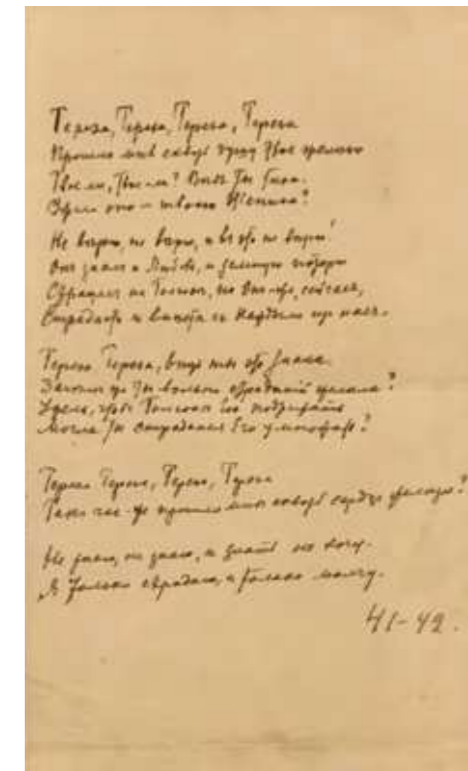 Тереза, Тереза, Тереза, Тереза
Прошло мнѣ сквозь душу Твое желѣзо
Твое ли, Твое ли? Ведь Ты
оно — твоего Жениха?
Не вѣрю, не вѣрю, и въ это не вѣрю!
Онъ зналъ и Любовь, и земную
на но Онъ-же, сейчасъ,
Страдаетъ и съ каждымъ изъ насъ.
Тереза Тереза, вѣдь ты это знала.
Зачѣмъ же Ты вольно страданий желала?
чтобъ Его
Могла Ты страданья Его умножать?
Тереза Тереза, Тереза, Тереза
Такъ чье-же прошло мнѣ сквозь сердце желѣзо?
Не знаю, не знаю, и знать не хочу.
Я только страдаю, и только молчу.
41-42.